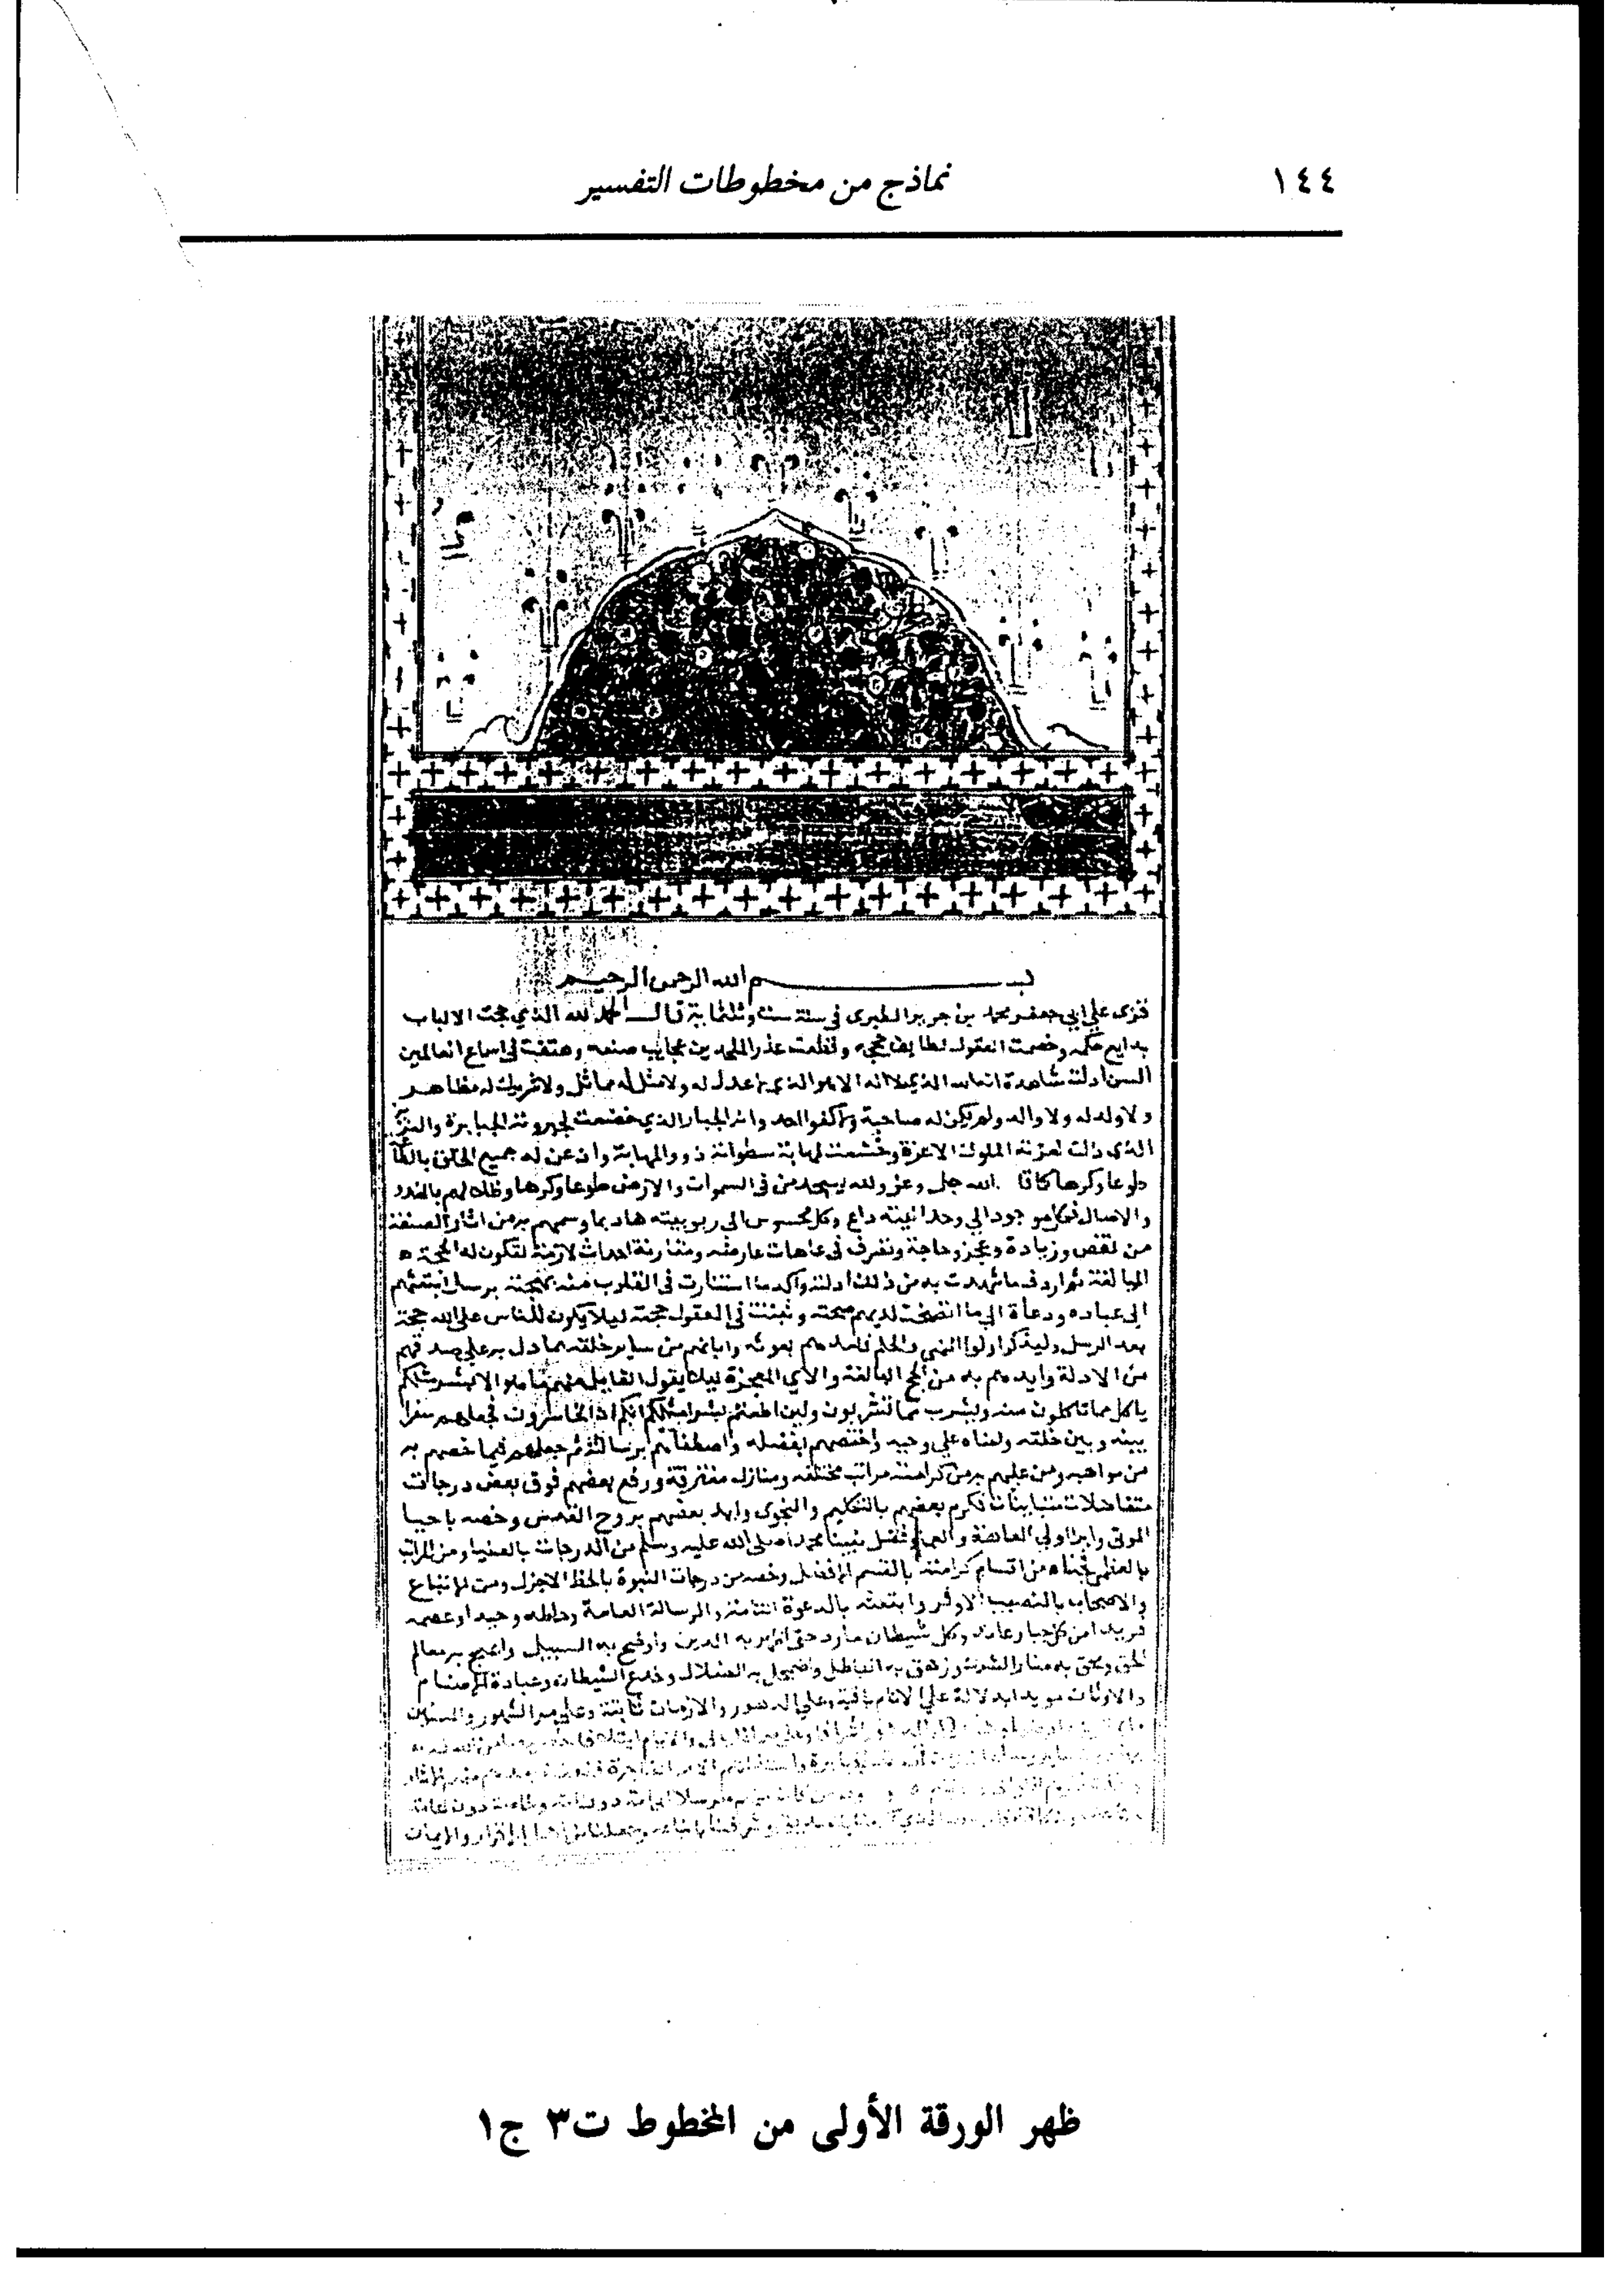 ١٤٤
نماذج من مخطوطات التفسير
بـــــم الله الرحمن الرحيم
قرى على ابي جعفر محمد بن جرير الطبرى في سنة ست وثلثماية قال الحمد لله الذي حجت الالباب
بدايع حكمه وخصمت العقول لطايف حججه وقطعت عذر الملحدين عجايب صنعه وهتفت في اسماع العالمين
السن ادلته شاهدة انه الله الذي لا اله الا هو الذي لا عدل له ولا مثل له مماثل ولا شريك له مظاهر
ولا ولد له ولا والد ولم يكن له صاحبة ولا كفوا احد وانه الجبار الذي خضعت لجبروته الجبابرة والعزيز
الذى ذلت لعزته الملوك الاعزة وخشعت لمهابة سطواته ذوو المهابة واذعن له جميع الخلق بالطاعة
طوعا وكرها كما قال الله جل وعز ولله يسجد من في السموات والارض طوعا وكرها وظلالهم بالغدو
والاصال فكل موجود الي وحدانيته داع وكل محسوس الى ربوبيته هاد بما وسمهم به من اثار الصنعة
من نقص وزيادة وعجز وحاجة وتصرف في عاهات عارضة ومقارنة احداث لازمة لتكون له الحجة
البالغة ثم اردف ما شهدت به من ذلك ادلته واكد ما استنارت في القلوب منه بهجته برسل ابتعثهم
الى عباده ودعاة الى ما اتضحت لديهم صحته وثبتت في العقول حجته ليلا يكون للناس على الله حجة
بعد الرسل وليذكر اولوا النهي والحلم فامدهم بعونه وابانهم من ساير خلقه بما دل به على صدقهم
من الادلة وايدهم به من الحجج البالغة والآي المعجزة ليلا يقول القايل منهم ما هذا الا بشر مثلكم
ياكل مما تاكلون منه ويشرب مما تشربون ولين اطعتم بشرا مثلكم انكم اذا لخاسرون فجعلهم سفرا
بينه وبين خلقه وامناه على وحيه واختصهم بفضله واصطفاهم برسالته ثم جعلهم فيما خصهم به
من مواهبه ومن عليهم به من كراماته مراتب مختلفه ومنازل مفترقة ورفع بعضهم فوق بعض درجات
متفاضلات متباينات فكرم بعضهم بالتكليم والنجوى وايد بعضهم بروح القدس وخصه باحيا
الموتى وابرا اولي العاهة والعما وفضل نبينا محمدا صلى الله عليه وسلم من الدرجات بالعليا ومن المراتب
بالعظمى فحباه من اقسام كرامته بالقسم الافضل وخصه من درجات النبوة بالحظ الاجزل ومن الاتباع
والاصحاب بالنصيب الاوفر وابتعثه بالدعوة التامة والرسالة العامة وحاطه وحيدا وعصمه
فريدا من كل جبار عاند وكل شيطان مارد حتى اظهر به الدين واوضح به السبيل وانهج به معالم
الحق ومحق به منار الشرك وزهق به الباطل واضمحل به الضلال وخدع الشيطان وعبادة الاصنام
والاوثان مويدا بدلالة على الانام باقية وعلى الدهور والازمان ثابتة وعلى مر الشهور والسنين
ظهر الورقة الأولى من المخطوط ت٣ ج١